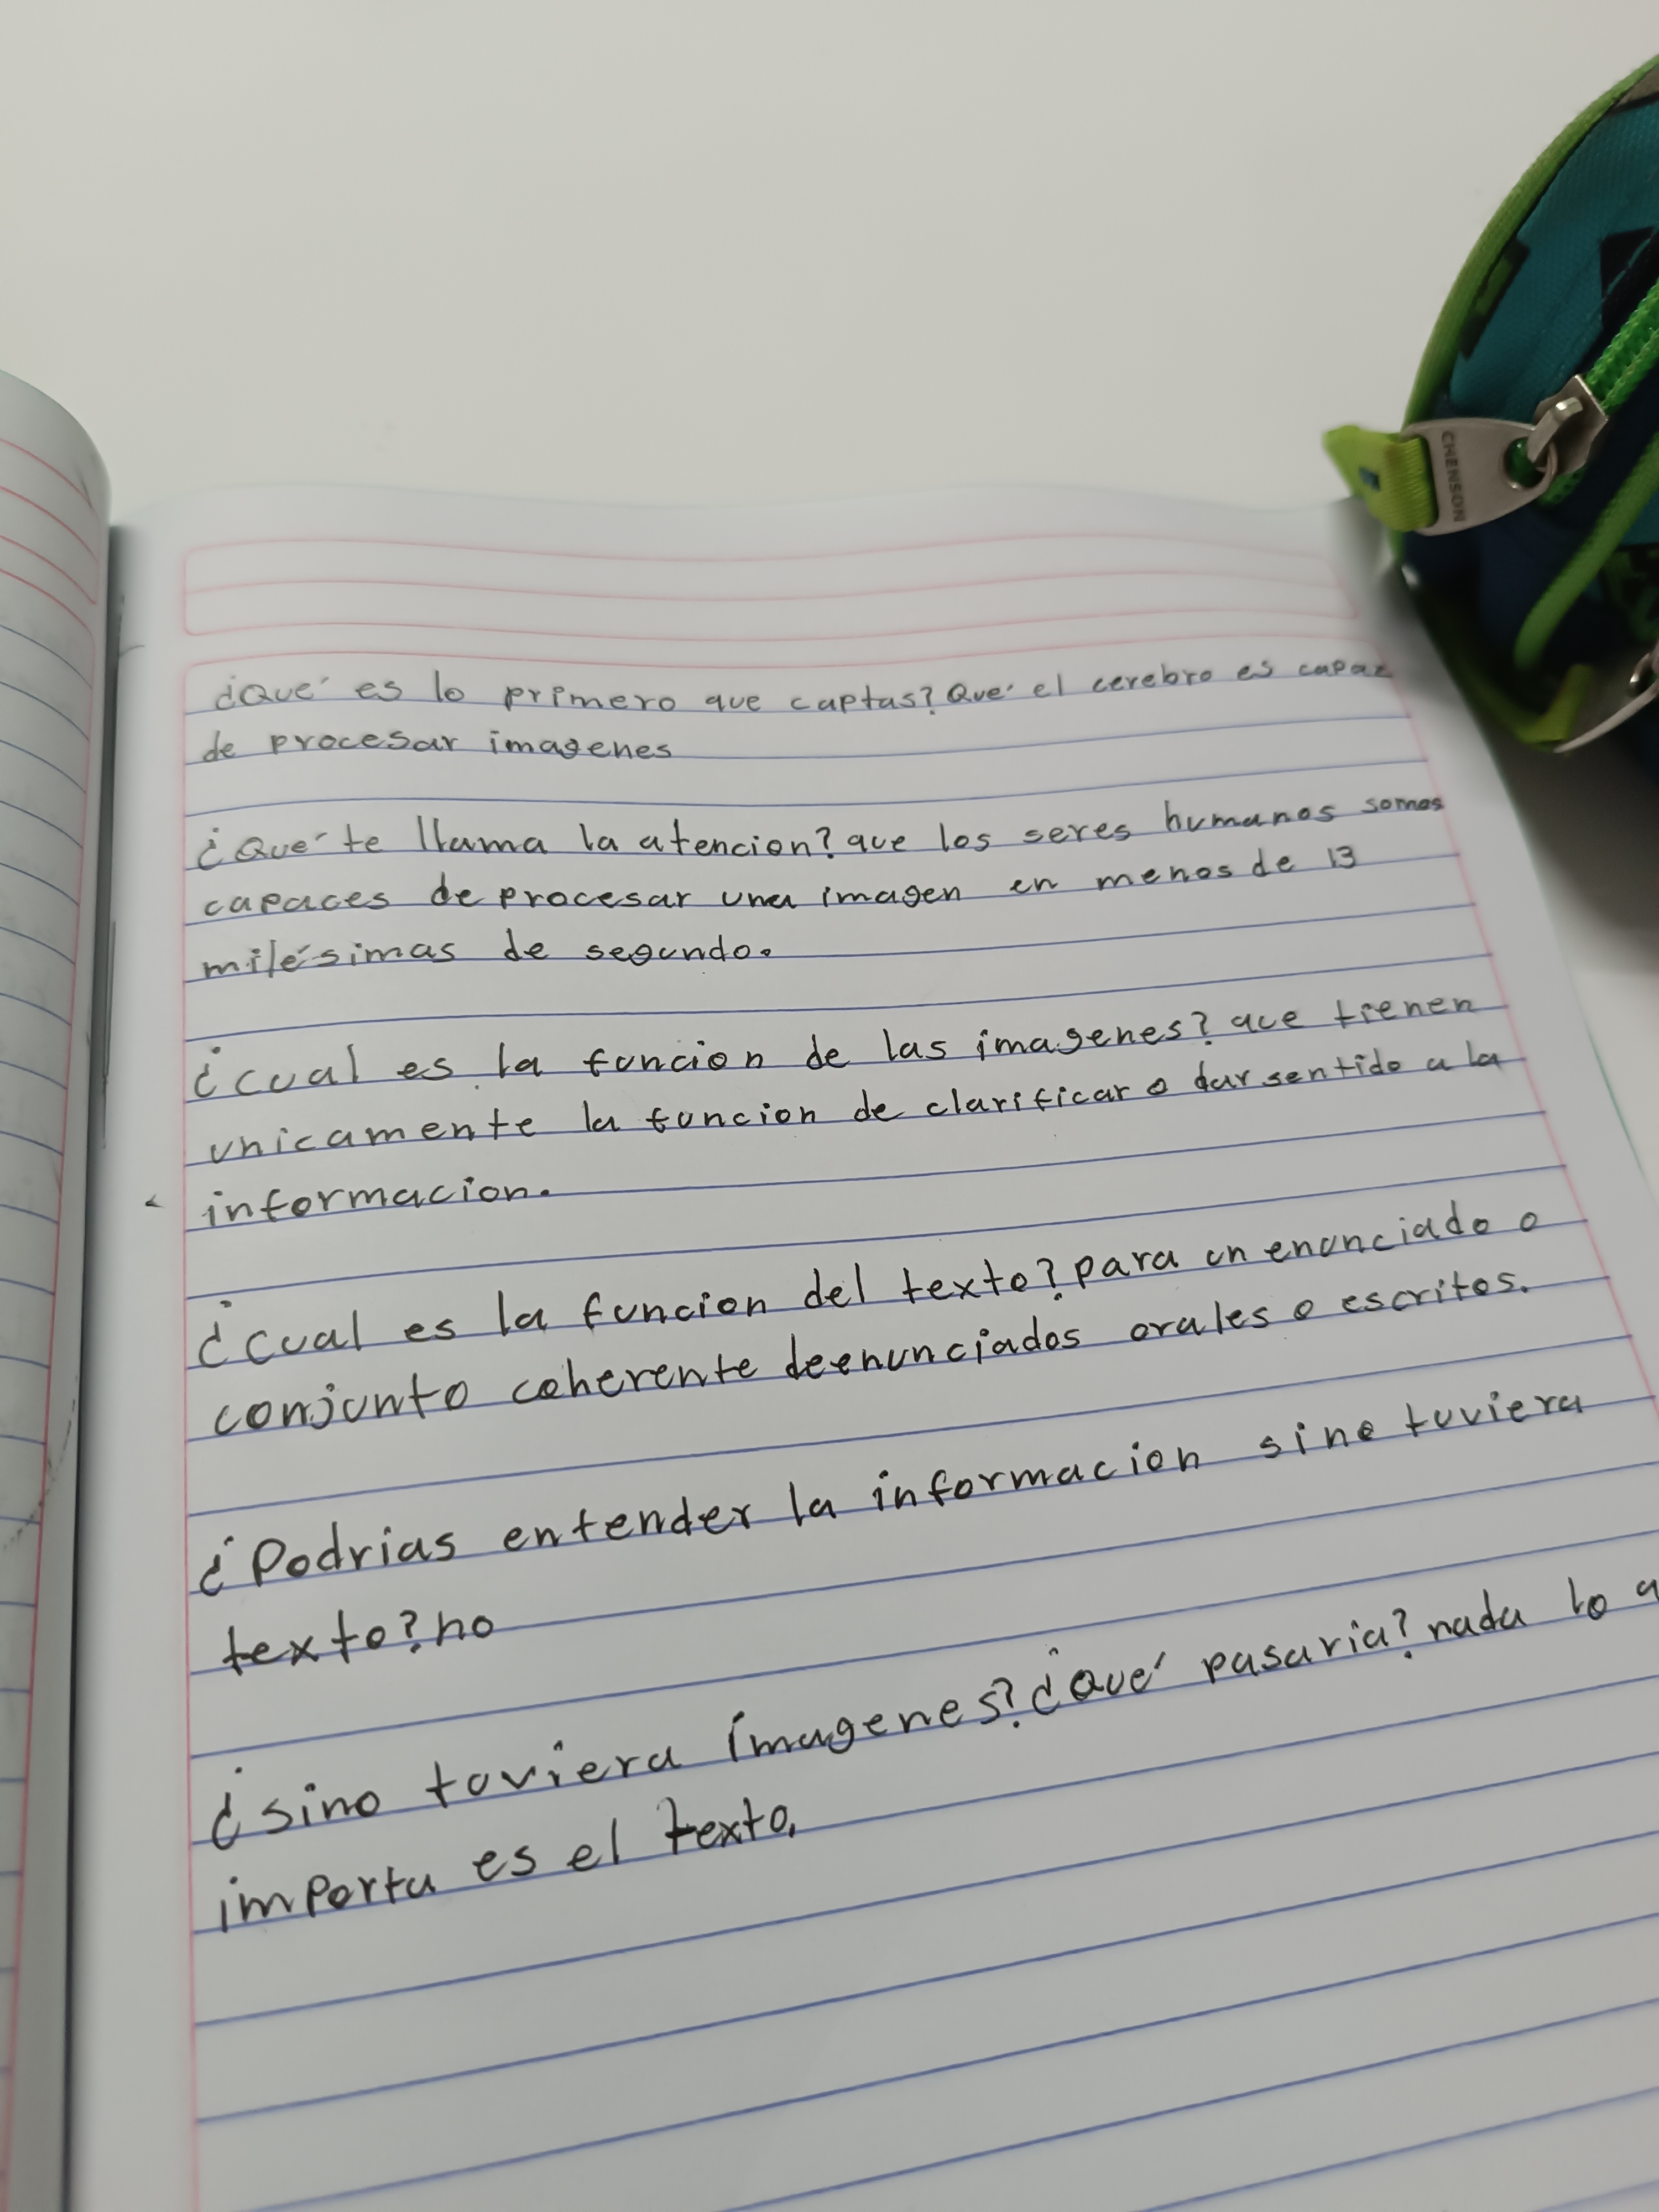 ¿Qué es lo primero que captas? Qué el cerebro es capaz
de procesar imagenes
¿Qué te llama la atencion? que los seres humanos somos
capaces de procesar una imagen en menos de 13
milésimas de segundo.
¿cual es la funcion de las imagenes? que tienen
unicamente la funcion de clarificar o dar sentido a la
informacion.
¿cual es la funcion del texto? para un enunciado o
conjunto coherente de enunciados orales o escritos.
¿Podrias entender la informacion sino tuviera
texto? no
¿sino tuviera imagenes? ¿Qué pasaria? nada lo q
importa es el texto.
CHENSON